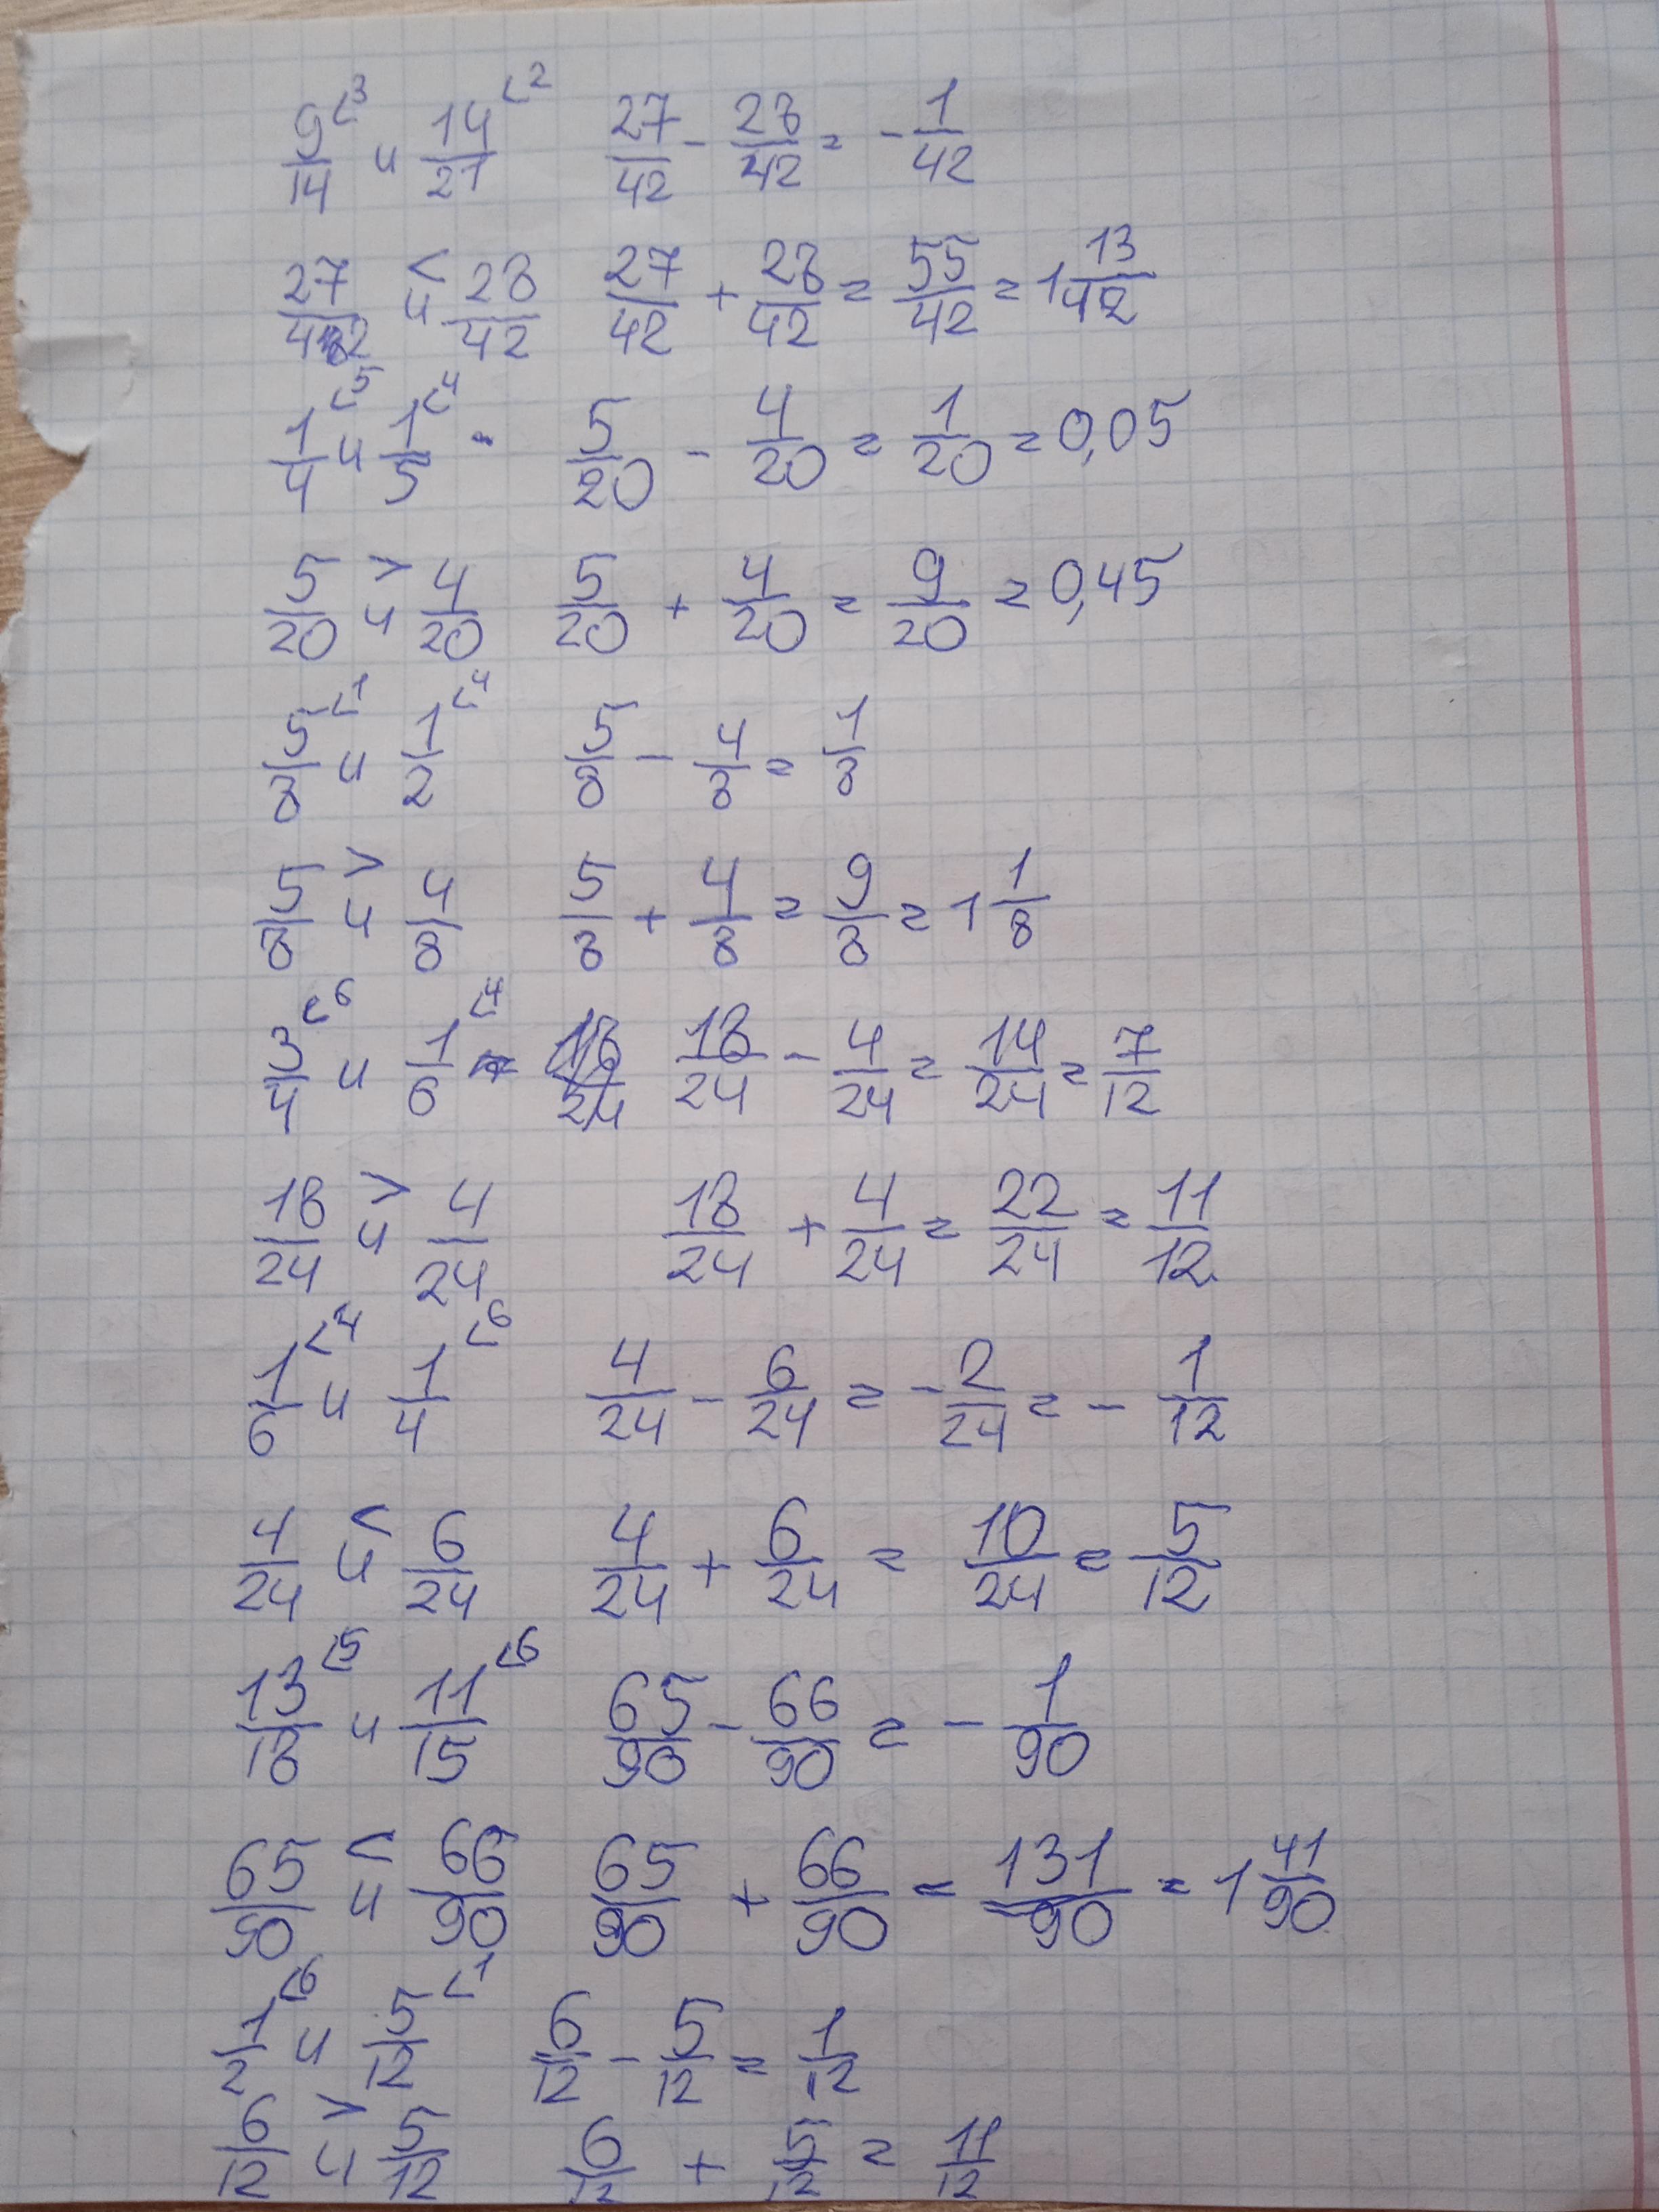 9/14 ⌊3 и 14/21 ⌊2 27/42 - 28/42 = - 1/42
27/42 < и 28/42 27/42 + 28/42 = 55/42 = 1 13/42
1/4 ⌊5 и 1/5 ⌊4 5/20 - 4/20 = 1/20 = 0,05
5/20 > и 4/20 5/20 + 4/20 = 9/20 = 0,45
5/8 ⌊1 и 1/2 ⌊4 5/8 - 4/8 = 1/8
5/8 > и 4/8 5/8 + 4/8 = 9/8 = 1 1/8
3/4 ⌊6 и 1/6 ⌊4 18/24 - 4/24 = 14/24 = 7/12
18/24 > и 4/24 18/24 + 4/24 = 22/24 = 11/12
1/6 ⌊4 и 1/4 ⌊6 4/24 - 6/24 = - 2/24 = - 1/12
4/24 < и 6/24 4/24 + 6/24 = 10/24 = 5/12
13/18 ⌊5 и 11/15 ⌊6 65/90 - 66/90 = - 1/90
65/90 < и 66/90 65/90 + 66/90 = 131/90 = 1 41/90
1/2 ⌊6 и 5/12 ⌊1 6/12 - 5/12 = 1/12
6/12 > и 5/12 6/12 + 5/12 = 11/12